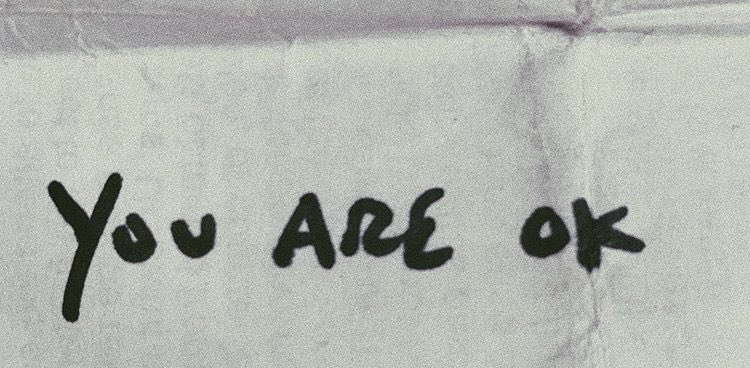 YOU ARE OK